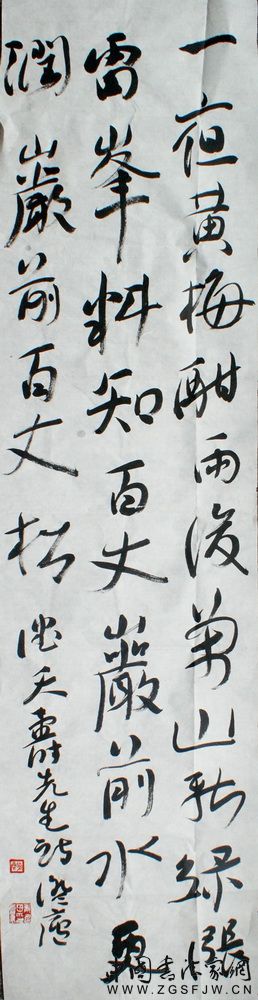 一夜黄梅酣雨後萬山新綠漲
雷峯料知百丈巖前水更
潤巖前百丈松
潘天壽先生詩
中國書法家網
WWW.ZGSFJW.CN